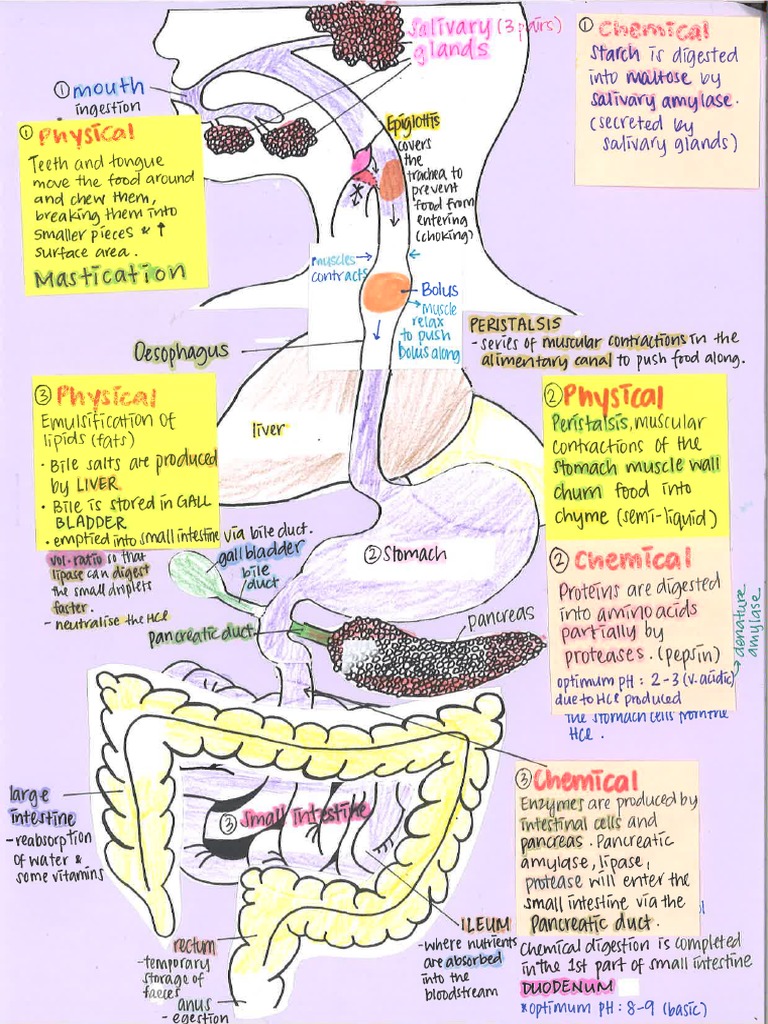 Salivary (3 pairs)
glands
① mouth
ingestion
① Physical
Teeth and tongue
move the food around
and chew them,
breaking them into
smaller pieces * ↑
surface area.
Mastication
① Chemical
Starch is digested
into maltose by
salivary amylase.
(secreted by
salivary glands)
Epiglottis
covers
the
trachea to
prevent
food from
entering
(choking)
muscles
contracts
Bolus
Muscle
relax
to push
bolus along
Oesophagus
PERISTALSIS
- series of muscular contractions in the
alimentary canal to push food along.
③ Physical
Emulsification of
lipids (fats)
• Bile salts are produced
by LIVER
• Bile is stored in GALL
BLADDER
• emptied into small intestine via bile duct.
vol. ratio so that
lipase can digest
the small droplets
faster.
- neutralise the HCl
liver
② Physical
Peristalsis, muscular
contractions of the
stomach muscle wall
churn food into
chyme (semi-liquid)
gallbladder
bile
duct
② Stomach
② Chemical
Proteins are digested
into amino acids
partially by
proteases. (pepsin)
optimum pH: 2-3 (v. acidic)
due to HCl produced
the stomach cells from the
HCl.
denature
amylase
pancreatic duct
pancreas
large
intestine
- reabsorption
of water &
some vitamins
③ small intestine
③ Chemical
Enzymes are produced by
intestinal cells and
pancreas. Pancreatic
amylase, lipase,
protease will enter the
small intestine via the
Pancreatic duct.
Chemical digestion is completed
in the 1st part of small intestine
DUODENUM
*optimum pH: 8-9 (basic)
ILEUM
- where nutrients
are absorbed
into the
bloodstream
rectum
- temporary
storage of
faeces
anus
- egestion